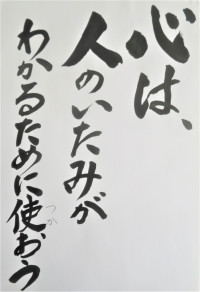 心は、
人のいたみが
わかるために使おう
つか